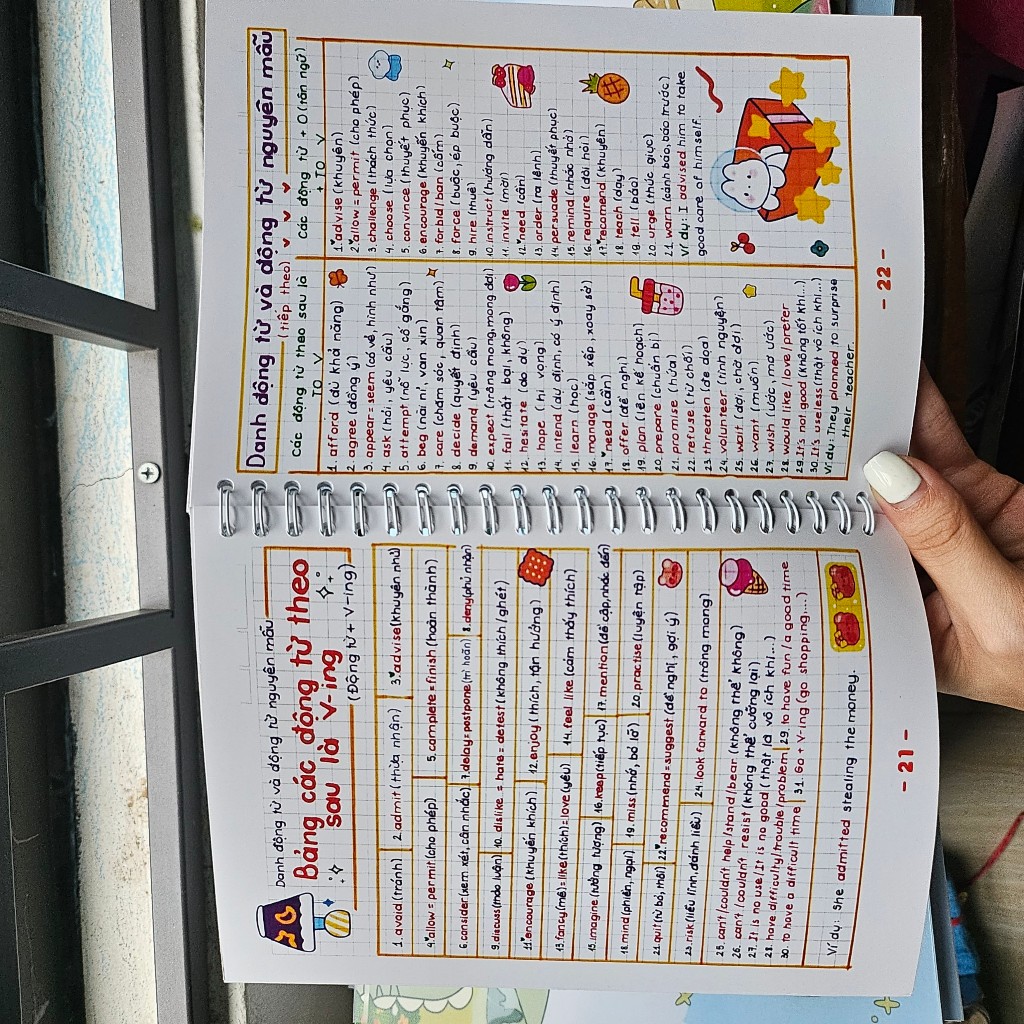 Danh động từ và động từ nguyên mẫu
Bảng các động từ theo
sau là V-ing
(Động từ + V-ing)
1. avoid (tránh) 2. admit (thừa nhận) 3. advise (khuyên nhủ)
4. allow = permit (cho phép) 5. complete = finish (hoàn thành)
6. consider (xem xét, cân nhắc) 7. delay = postpone (trì hoãn) 8. deny (phủ nhận)
9. discuss (thảo luận) 10. dislike = hate = detest (không thích / ghét)
11. encourage (khuyến khích) 12. enjoy (thích, tận hưởng)
13. fancy (mê) = like (thích) = love (yêu) 14. feel like (cảm thấy thích)
15. imagine (tưởng tượng) 16. keep (tiếp tục) 17. mention (đề cập, nhắc đến)
18. mind (phiền, ngại) 19. miss (nhớ, bỏ lỡ) 20. practise (luyện tập)
21. quit (từ bỏ, thôi) 22. recommend = suggest (đề nghị, gợi ý)
23. risk (liều lĩnh, đánh liều) 24. look forward to (trông mong)
25. can't / couldn't help / stand / bear (không thể không)
26. can't / couldn't resist (không thể cưỡng lại)
27. It is no use / It is no good (thật là vô ích khi...)
28. have difficulty / trouble / problem 29. to have fun / a good time
30. to have a difficult time 31. Go + V-ing (go shopping....)
Ví dụ: She admitted stealing the money.
- 21 -
Danh động từ và động từ nguyên mẫu
(tiếp theo)
Các động từ theo sau là
TO V
1. afford (đủ khả năng)
2. agree (đồng ý)
3. appear = seem (có vẻ, hình như)
4. ask (hỏi, yêu cầu)
5. attempt (nỗ lực, cố gắng)
6. beg (nài nỉ, van xin)
7. care (chăm sóc, quan tâm)
8. decide (quyết định)
9. demand (yêu cầu)
10. expect (trông mong, mong đợi)
11. fail (thất bại, không)
12. hesitate (do dự)
13. hope (hi vọng)
14. intend (dự định, có ý định)
15. learn (học)
16. manage (sắp xếp, xoay sở)
17. need (cần)
18. offer (đề nghị)
19. plan (lên kế hoạch)
20. prepare (chuẩn bị)
21. promise (hứa)
22. refuse (từ chối)
23. threaten (đe dọa)
24. volunteer (tình nguyện)
25. wait (đợi, chờ đợi)
26. want (muốn)
27. wish (ước, mơ ước)
28. would like / love / prefer
29. It's not good (không tốt khi...)
30. It's useless (thật vô ích khi...)
Ví dụ: They planned to surprise
their teacher.
Các động từ + O (tân ngữ)
+ TO V
1. advise (khuyên)
2. allow = permit (cho phép)
3. challenge (thách thức)
4. choose (lựa chọn)
5. convince (thuyết phục)
6. encourage (khuyến khích)
7. forbid / ban (cấm)
8. force (buộc, ép buộc)
9. hire (thuê)
10. instruct (hướng dẫn)
11. invite (mời)
12. need (cần)
13. order (ra lệnh)
14. persuade (thuyết phục)
15. remind (nhắc nhở)
16. require (đòi hỏi)
17. recomend (khuyên)
18. teach (dạy)
19. tell (bảo)
20. urge (thúc giục)
21. warn (cảnh báo, báo trước)
Ví dụ: I advised him to take
good care of himself.
- 22 -